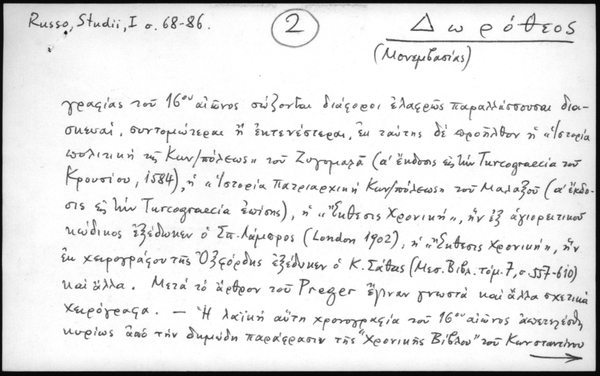 Russo, Studii, I σ. 68-86.
2
Δωρόθεος
(Μονεμβασίας)
γραφίας τοῦ 16ου αἰῶνος σώζονται διάφοροι ἐλαφρῶς παραλλάσσουσαι δια-
σκευαί, συντομώτεραι ἢ ἐκτενέστεραι, ἐκ ταύτης δὲ προῆλθον ἡ "Ἱστορία
πολιτικὴ τῆς Κων/πόλεως" τοῦ Ζυγομαλᾶ (α' ἔκδοσις εἰς τὴν Turcograecia τοῦ
Κρουσίου, 1584), ἡ "Ἱστορία Πατριαρχικὴ Κων/πόλεως" τοῦ Μαλαξοῦ (α' ἔκδο-
σις εἰς τὴν Turcograecia ἐπίσης), ἡ "Ἔκθεσις Χρονική", ἣν ἐξ ἁγιορειτικοῦ
κώδικος ἐξέδωκεν ὁ Σπ. Λάμπρος (London 1902), ἡ "Ἔκθεσις χρονική", ἣν
ἐκ χειρογράφου τῆς Ὀξφόρδης ἐξέδωκεν ὁ Κ. Σάθας (Μεσ. Βιβλ. τόμ. 7, σ. 557-610)
καὶ ἄλλα. Μετὰ τὸ ἄρθρον τοῦ Preger ἔγιναν γνωστὰ καὶ ἄλλα σχετικὰ
χειρόγραφα. – Ἡ λαϊκὴ αὕτη χρονογραφία τοῦ 16ου αἰῶνος ἀπετελέσθη
κυρίως ἀπὸ τὴν δημώδη παράφρασιν τῆς "Χρονικῆς Βίβλου" τοῦ Κωνσταντίνου